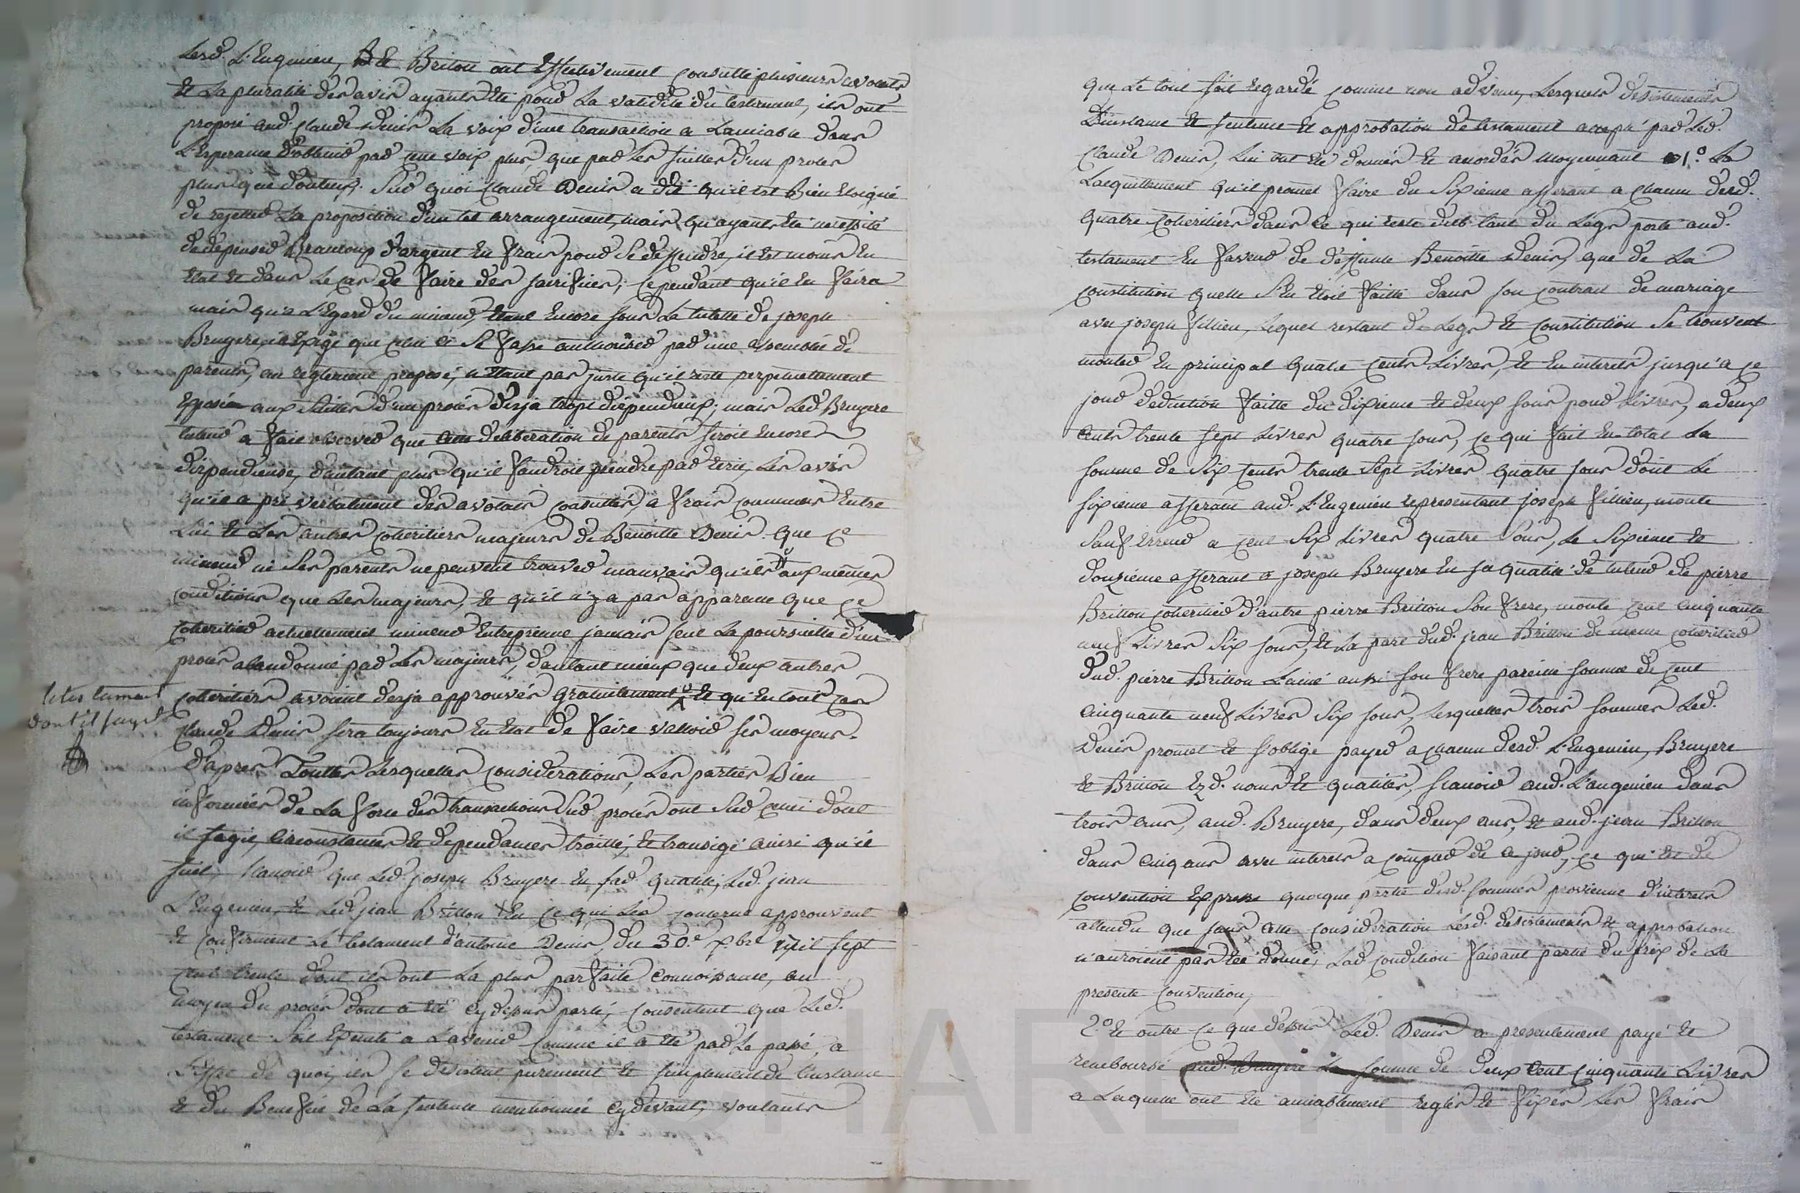 Lesd. L'Eugenieu, & Britton ont Effectivement consulté plusieurs avocats
Et La pluralité des avis ayants Eté pour La validité du testament, ils ont
proposé aud. Claude Denis La voix d'une transaction a Lamiable dans
L'Esperance d'obtenir par cette voix plus que par Les suittes d'un procès
plus que douteux; sur quoi Claude Denis a dit qu'il est Bien Eloigné
de rejetter La proposition d'un tel arrangement, mais qu'ayants Eté necessité
de depenser Beaucoup d'argent En frais pour se deffendre, il Est moins En
Etat Et dans Le cas de faire des sacrifices; cependant qu'il En faira
mais qu'a L'Egard du mineur, Encore sous La tutelle de joseph
Bruyere, il Exige que celui ci se fasse authoriser par une assemblée de
parents, au reglement proposé, n'Etant pas juste qu'il reste perpetuellement
Exposé aux suittes d'un procès desja trop dispendieux; mais Led. Bruyere
tuteur a fait observer que cette deliberation de parents seroit Encore
dispendieuse, d'autant plus qu'il faudroit prendre par Ecrit, Les avis
qu'il a pris verbalement des avocats consultés, a frais communs Entre
Lui Et Les autres coheritiers majeurs de Benoitte Denis que ce
mineur ni ses parents ne peuvent trouver mauvais qu'il aux mêmes
conditions que Les majeurs, Et qu'il n'y a pas apparence que ce
coheritier actuellement mineur Entreprenne jamais seul La poursuitte d'un
procès abandonné par Les majeurs, d'autant mieux que deux autres
coheritiers avoient desja approuvés gratuitement Et qu'En tout cas
le testament
dont il s'agit
Claude Denis sera toujours En Etat de faire valloir ses moyens.
D'après Touttes Lesquelles considerations, Les parties Bien
informées de La force des transactions sur procès ont sur celui dont
il s'agit, circonstances Et dependances traitté, Et transigé ainsi qu'il
suit, scavoir que Led. joseph Bruyere En sad. qualité, Led. jean
L'Eugenieu, Et Led. jean Britton En ce qui Les concerne approuvent
Et confirment Le testament d'antoine Denis, du 30e. xbre mil sept
cent trente dont ils ont La plus parfaite connoissance, au
moyen du procès dont a Eté cy dessus parlé, consentent que Led.
testament soit Executé a L'avenir comme il a Eté par Le passé, a
L'Effet de quoi, ils se desistent purement Et simplement de L'instance
Et du Benefice de La sentence mentionnée cy devant, voulants
que Le tout soit regardé comme non advenu, Lesquels desistements
D'instance Et sentence Et approbation de testament accepté par Led.
Claude Denis, Lui ont Eté donnés Et accordés moyennant 1.° La
Lacquittement qu'il promet faire du sixieme afferant a chacun desd.
quatre coheritiers dans ce qui reste dub tant du Legs porté aud.
testament En faveur de deffunte Benoitte Denis, que de La
constitution quelle s'En Etoit faitte dans son contrat de mariage
avec joseph fillieu, Lequel restant de Legs Et constitution se trouvent
monter En principal quatre cents Livres, Et En interets jusqu'a ce
jour deduction faitte du dixieme Et deux sous pour Livres, a deux
cents trente sept Livres quatre sous, ce qui fait En total La
somme de six cents trente sept Livres quatre sous dont Le
sixieme afferant aud. L'Eugenieu representant joseph fillieu, monte
sauf Erreur a cent six Livres quatre sous, Le sixieme Et
douzieme afferant a joseph Bruyere En sa qualité de tuteur de pierre
Britton coheritier d'autre pierre Britton son frere, monte cent cinquante
neuf Livres six sous, Et La part dud. jean Britton de meme coheritier
dud. pierre Britton L'ainé aussi son frere pareille somme de cent
cinquante neuf Livres six sous, Lesquelles trois sommes Led.
Denis promet Et s'oblige payer a chacun desd. L'Eugenieu, Bruyere
Et Britton Ezd. noms Et qualités, scavoir aud. L'Eugenieu dans
trois ans, aud. Bruyere, dans deux ans, Et aud. jean Britton
dans cinq ans avec interets a compter de ce jour, ce qui Est de
convention Expresse quoique partie desd. sommes provienne d'interets
attendu que sans cette consideration Lesd. desistements Et approbation
n'auroient pas Eté donnés, Lad. condition faisant partie du prix de La
presente convention,
2.° Et outre ce que dessus Led. Denis a presentement payé Et
remboursé aud. Bruyere La somme de deux cent cinquante Livres
a Laquelle ont Eté amiablement reglés Et fixés Les frais